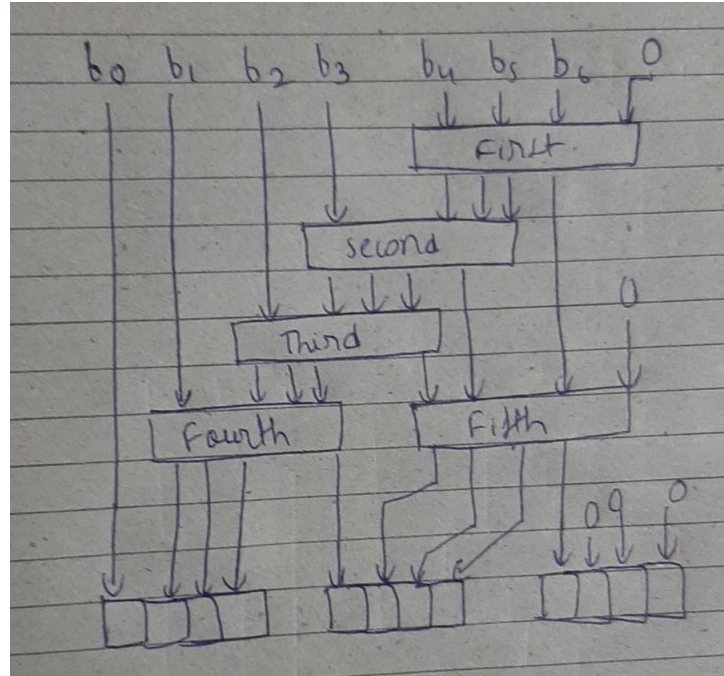 b0 b1 b2 b3 b4 b5 b6 0
First
second
0
Third
Fourth Fifth
0 0 0